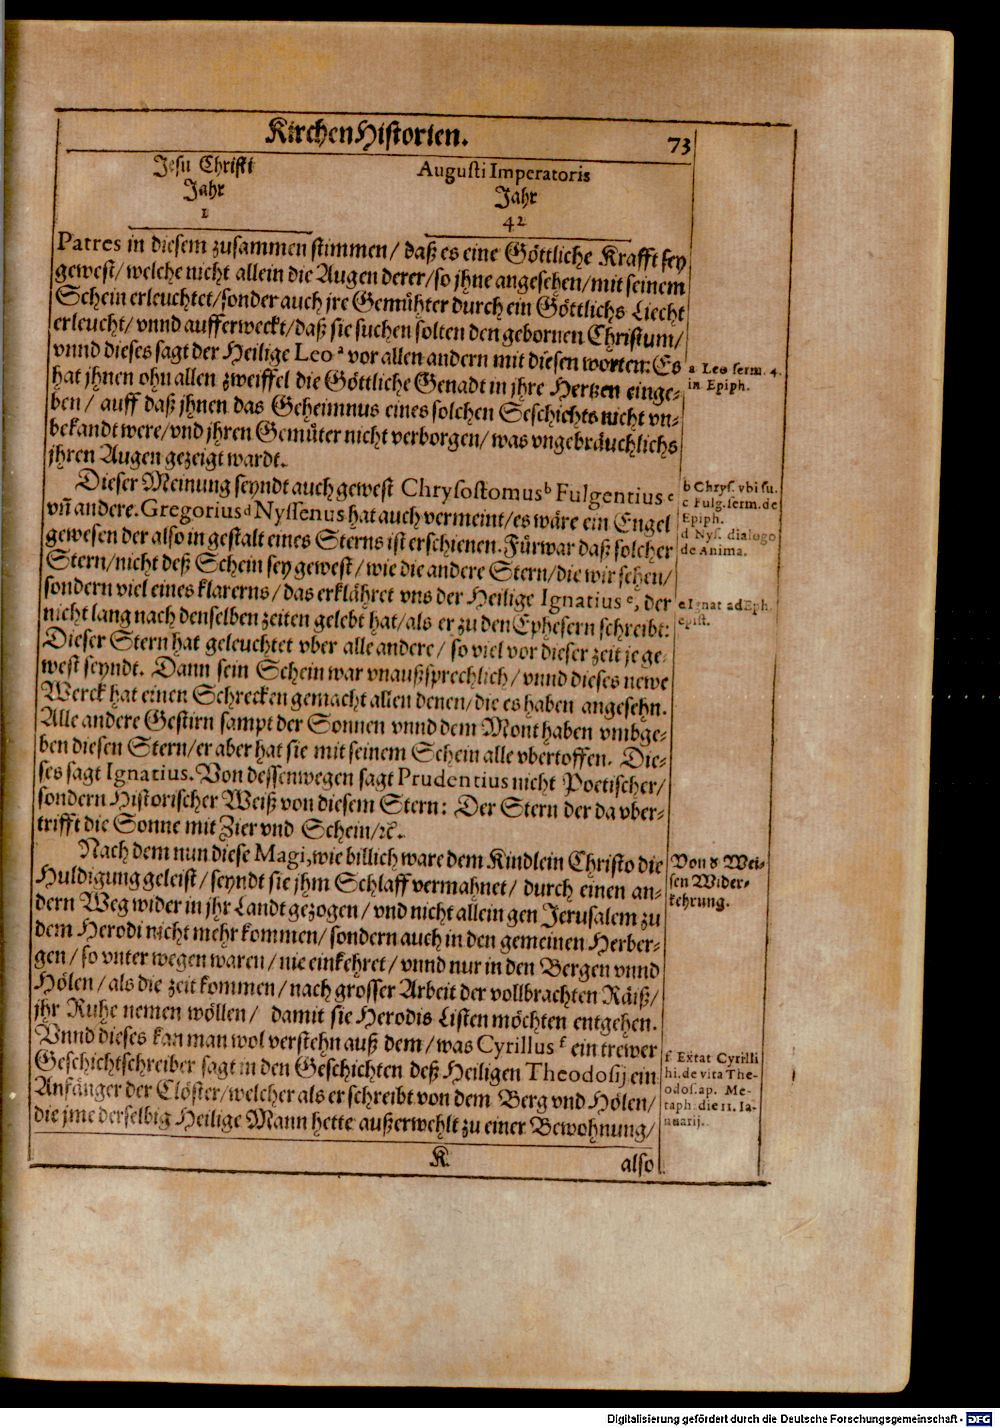 KirchenHistorien. 73
Jesu Christi
Jahr
1
Augusti Imperatoris
Jahr
42
Patres in diesem zusammen stimmen/ daß es eine Göttliche Krafft sey
gewest/ welche nicht allein die Augen derer/ so jhne angesehen/ mit seinem
Schein erleuchtet/ sonder auch jre Gemühter durch ein Göttlichs Liecht
erleucht/ vnnd aufferweckt/ daß sie suchen solten den gebornen Christum/
vnnd dieses sagt der Heilige Leo a vor allen andern mit diesen worten: Es
hat jhnen ohn allen zweiffel die Göttliche Genadt in jhre Hertzen einge-
ben/ auff daß jhnen das Geheimnus eines solchen Geschichts nicht vn-
bekandt were/ vnd jhren Gemüter nicht verborgen/ was vngebräuchlichs
jhren Augen gezeigt wardt.
a Leo serm. 4.
in Epiph.
Dieser Meinung seyndt auch gewest Chrysostomus b Fulgentius c
vñ andere. Gregorius d Nyssenus hat auch vermeint/ es wäre ein Engel
gewesen der also in gestalt eines Sterns ist erschienen. Fürwar daß solcher
Stern/ nicht deß Schein sey gewest/ wie die andere Stern/ die wir sehen/
sondern viel eines klarerns/ das erklähret vns der Heilige Ignatius e, der
nicht lang nach denselben zeiten gelebt hat/ als er zu den Ephesern schreibt:
Dieser Stern hat geleuchtet vber alle andere/ so viel vor dieser zeit je ge-
west seyndt. Dann sein Schein war vnaußsprechlich/ vnnd dieses newe
Werck hat einen Schrecken gemacht allen denen/ die es haben angesehn.
Alle andere Gestirn sampt der Sonnen vnnd dem Mont haben vmbge-
ben diesen Stern/ er aber hat sie mit seinem Schein alle vbertoffen. Die-
ses sagt Ignatius. Von dessenwegen sagt Prudentius nicht Poetischer/
sondern Historischer Weiß von diesem Stern: Der Stern der da vber-
trifft die Sonne mit Zier vnd Schein/ ꝛc.
b Chrys. vbi su.
c Fulg. serm. de
Epiph.
d Nys. dialogo
de Anima.
e Ignat ad Eph.
epist.
Nach dem nun diese Magi, wie billich ware dem Kindlein Christo die
Huldigung geleist/ seyndt sie jhm Schlaff vermahnet/ durch einen an-
dern Weg wider in jhr Landt gezogen/ vnd nicht allein gen Jerusalem zu
dem Herodi nicht mehr kommen/ sondern auch in den gemeinen Herber-
gen/ so vnter wegen waren/ nie einkehret/ vnnd nur in den Bergen vnnd
Hölen/ als die zeit kommen/ nach grosser Arbeit der vollbrachten Räiß/
jhr Ruhe nemen wöllen/ damit sie Herodis Listen möchten entgehen.
Vnnd dieses kan man wol verstehn auß dem/ was Cyrillus f ein trewer
Geschichtschreiber sagt in den Geschichten deß Heiligen Theodosij ein
Anfänger der Clöster/ welcher als er schreibt von dem Berg vnd Hölen/
die jme derselbig Heilige Mann hette außerwehlt zu einer Bewohnung/
Von d' Wei-
sen Wider-
kehrung.
f Extat Cyrilli
hi. de vita The-
odos. ap. Me-
taph. die 11. Ia-
nuarij.
K
also
Digitalisierung gefördert durch die Deutsche Forschungsgemeinschaft - DFG